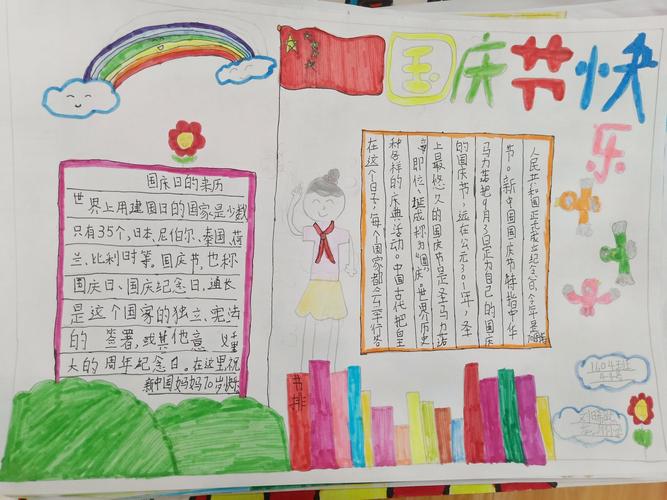 国庆节快
乐
国庆日的来历
世界上用建国日的国家是少数
只有35个,日本、尼伯尔、泰国、荷
兰、比利时等。国庆节,也称
国庆日、国庆纪念日,通长
是这个国家的独立、宪法
的签署,或其他意
大的周年纪念日。在这里祝
新中国妈妈70岁
在这个日子,每个国家都会举行各
种各样的庆典活动。中国古代把皇
即位、诞辰称为"国庆"世界历史
上最悠久的国庆节是圣马力诺
的国庆节,远在公元301年,圣
马力诺把9月3日定为自己的国庆
节。新中国国庆节特指中华
人民共和国正式成立纪念
书排
1604班